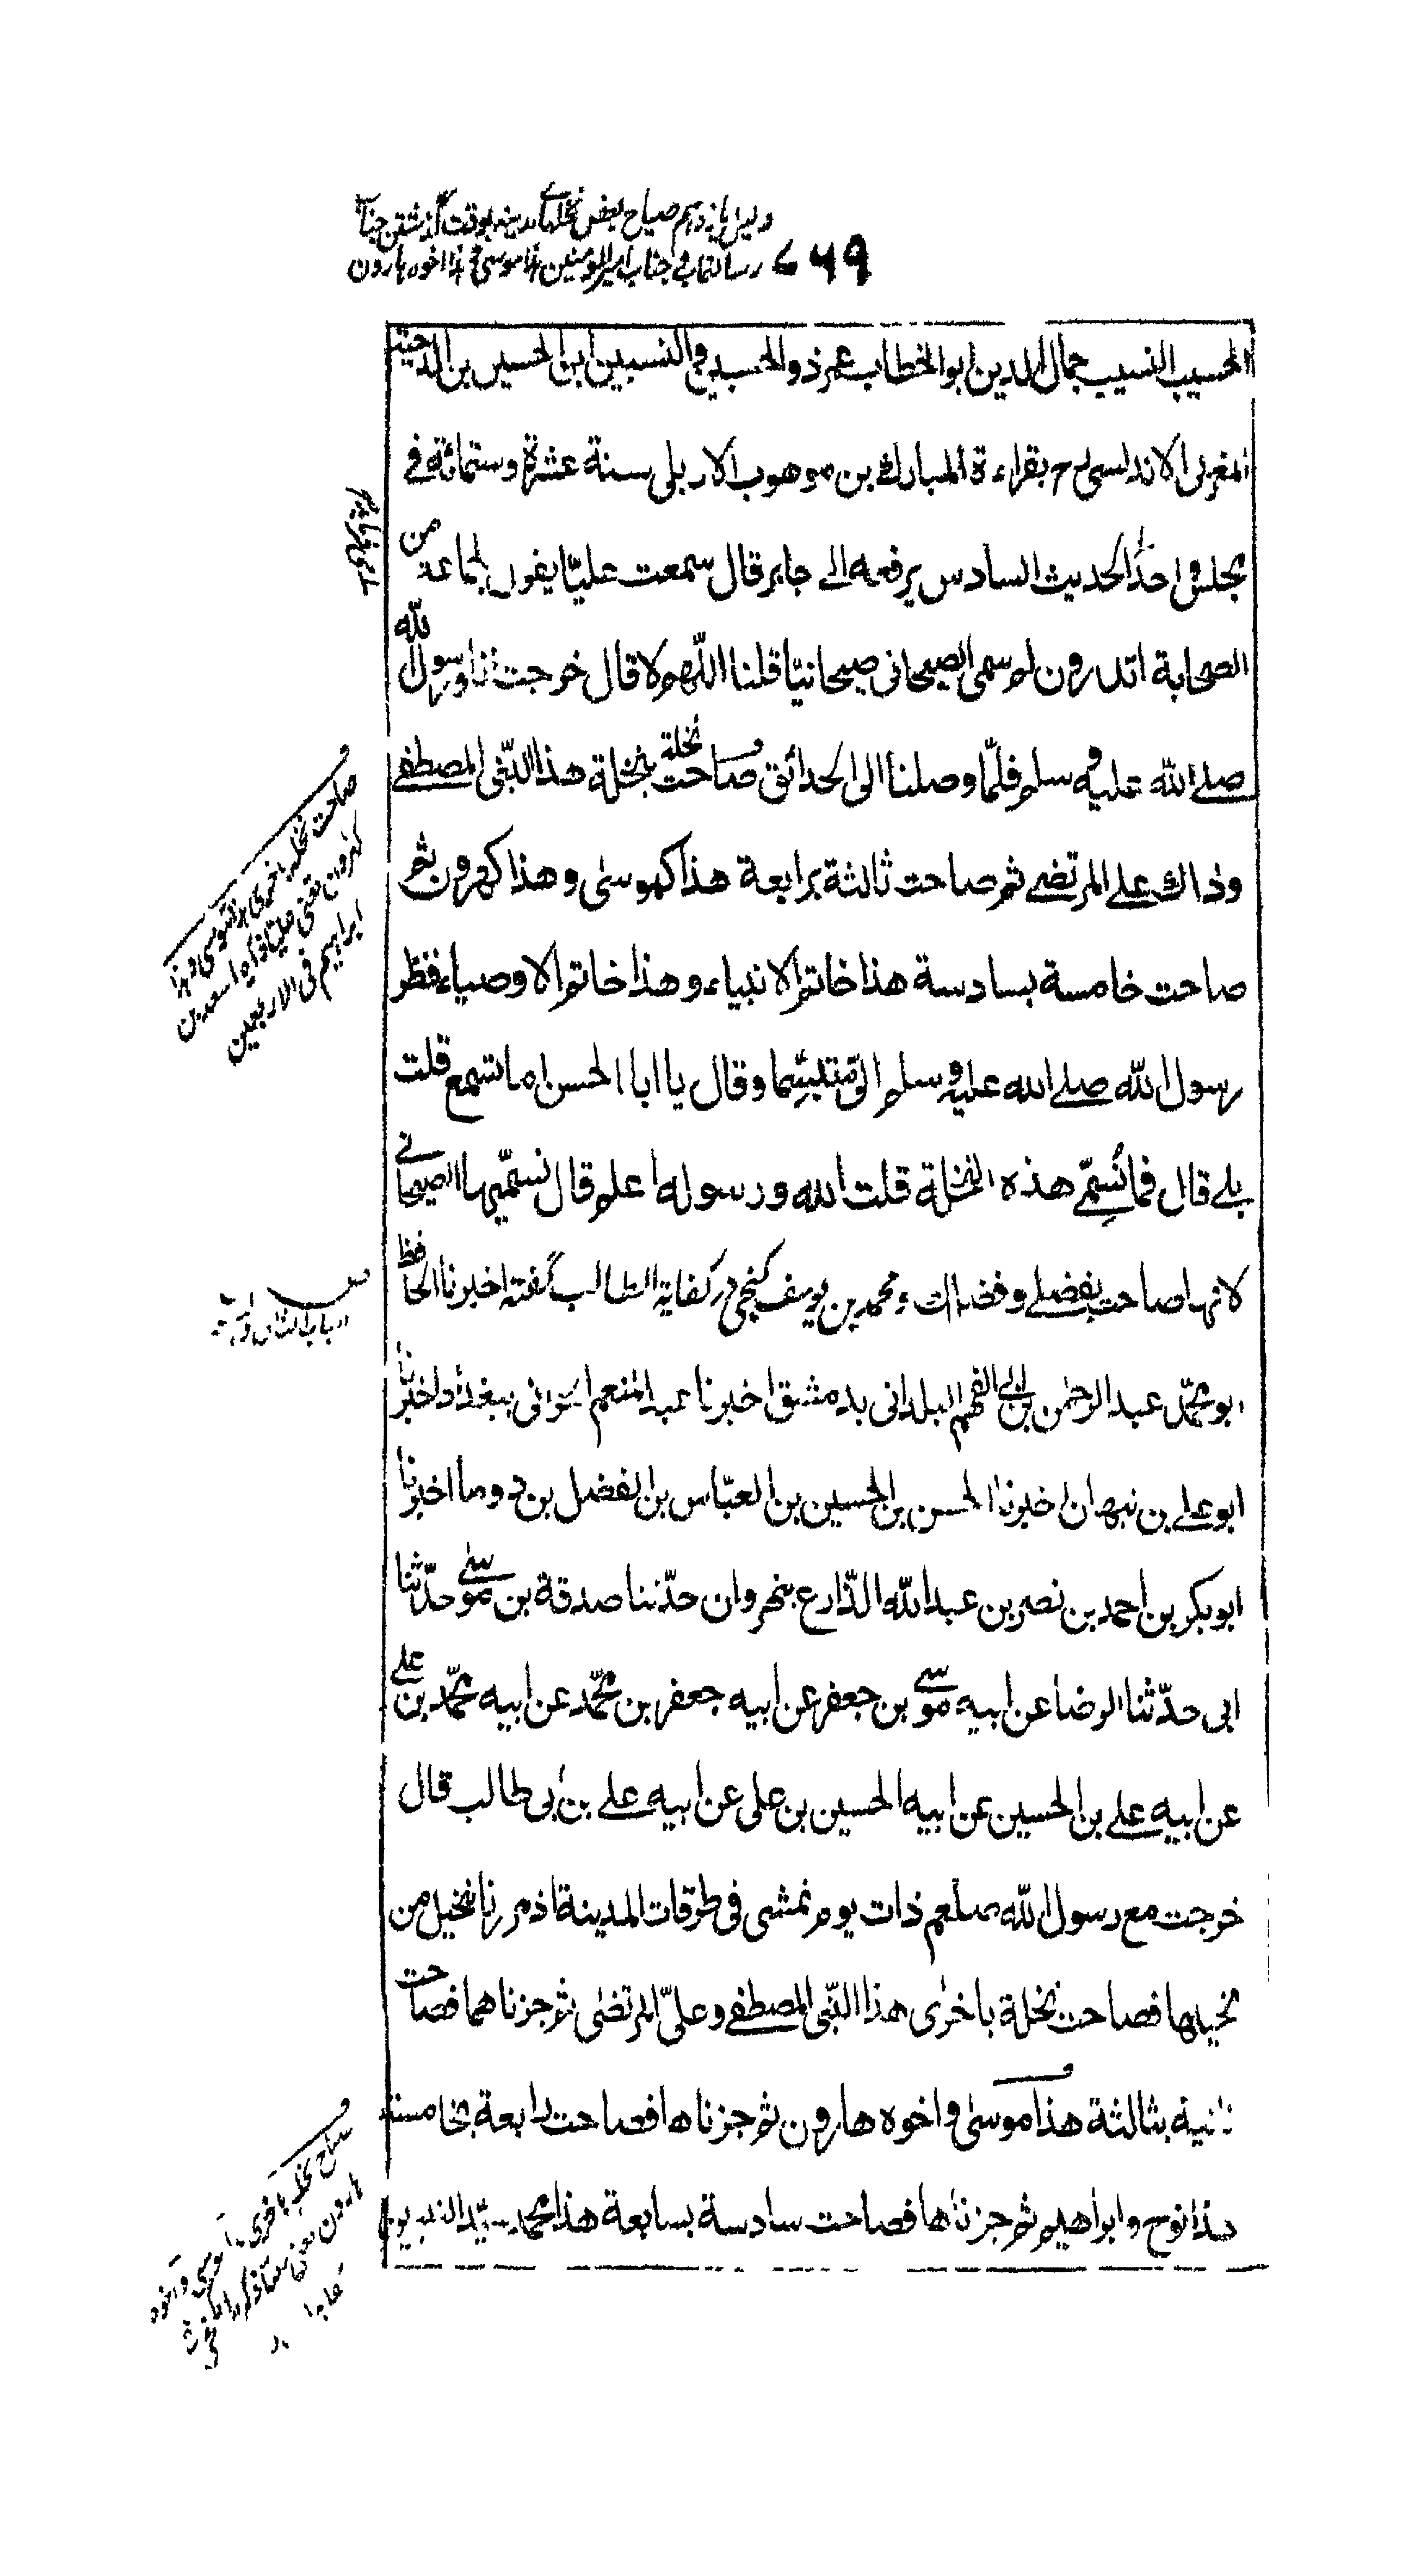 دلیل یازدهم صیاح بعض نخلهای مدینه بوقت گذشتن جناب
رسالتمآب و جناب امیر المومنین هذا موسی و هذا اخوه هارون
۶۴۹
الحسیب النسیب جمال الدین ابو الخطاب عمر ذو الحسبین و النسبین ابن الحسین بن الدحیة
المغربی الاندلسی رح بقراءة المبارک بن موهوب الاربلی سنة عشرة وستمائة فی
مجلس واحد الحدیث السادس یرفعه الی جابر قال سمعت علیّا یقول لجماعة من
الصحابة اتدرون لم سمی الصیحانی صیحانیّا قلنا اللّهم لا قال خرجت انا ورسول الله
صلے الله علیه و سلم فلمّا وصلنا الی الحدائق صاحت نخلة بنخلة هذا النّبی المصطفے
وذاك علے المرتضے ثم صاحت ثالثة برابعة هذا کموسی وهذا کهرون ثم
صاحت خامسة بسادسة هذا خاتم الانبیاء وهذا خاتم الاوصیاء فنظر
رسول الله صلے الله علیه و سلم الیّ متبسّما وقال یا ابا الحسن اما تسمع قلت
بلے قال فما نُسمِّے هذه النخلة قلت الله ورسوله اعلم قال نسمّیها الصیحانے
لانها صاحت بفضلے وفضلك و محمد بن یوسف کنجی در کفایة الطالب گفته اخبرنا الحافظ
ابو محمّد عبد الرحمن بن ابی الفهم البلدانی بدمشق اخبرنا عبد المنعم الحرانی ببغداد اخبرنا
ابو علے بن نبهان اخبرنا الحسن بن الحسین بن العبّاس بن الفضل بن دوما اخبرنا
ابو بکر بن احمد بن نصر بن عبد الله الذّارع بنهروان حدّثنا صدقة بن موسے حدّثنا
ابی حدّثنا الرضا عن ابیه موسے بن جعفر عن ابیه جعفر بن محمّد عن ابیه محمّد بن علے
عن ابیه علے بن الحسین عن ابیه الحسین بن علی عن ابیه علے بن ابی طالب قال
خرجت مع رسول الله صلعم ذات یوم نمشی فی طرقات المدینة اذ مررنا بنخیل من
نخیلها فصاحت نخلة باخری هذا النّبی المصطفے وعلیّ المرتضی ثم جزناهما فصاحت
ثانیة بثالثة هذا موسی واخوه هارون ثم جزناها فصاحت رابعة بخامسة
هذا نوح وابراهیم ثم جزناها فصاحت سادسة بسابعة هذا محمد سیّد النبیین
صاحت نخلة باخری هذا موسی و هذا
کهرون
ابراهیم فی الاربعین
صاح نخلة باخری هذا موسی و اخوه
هارون